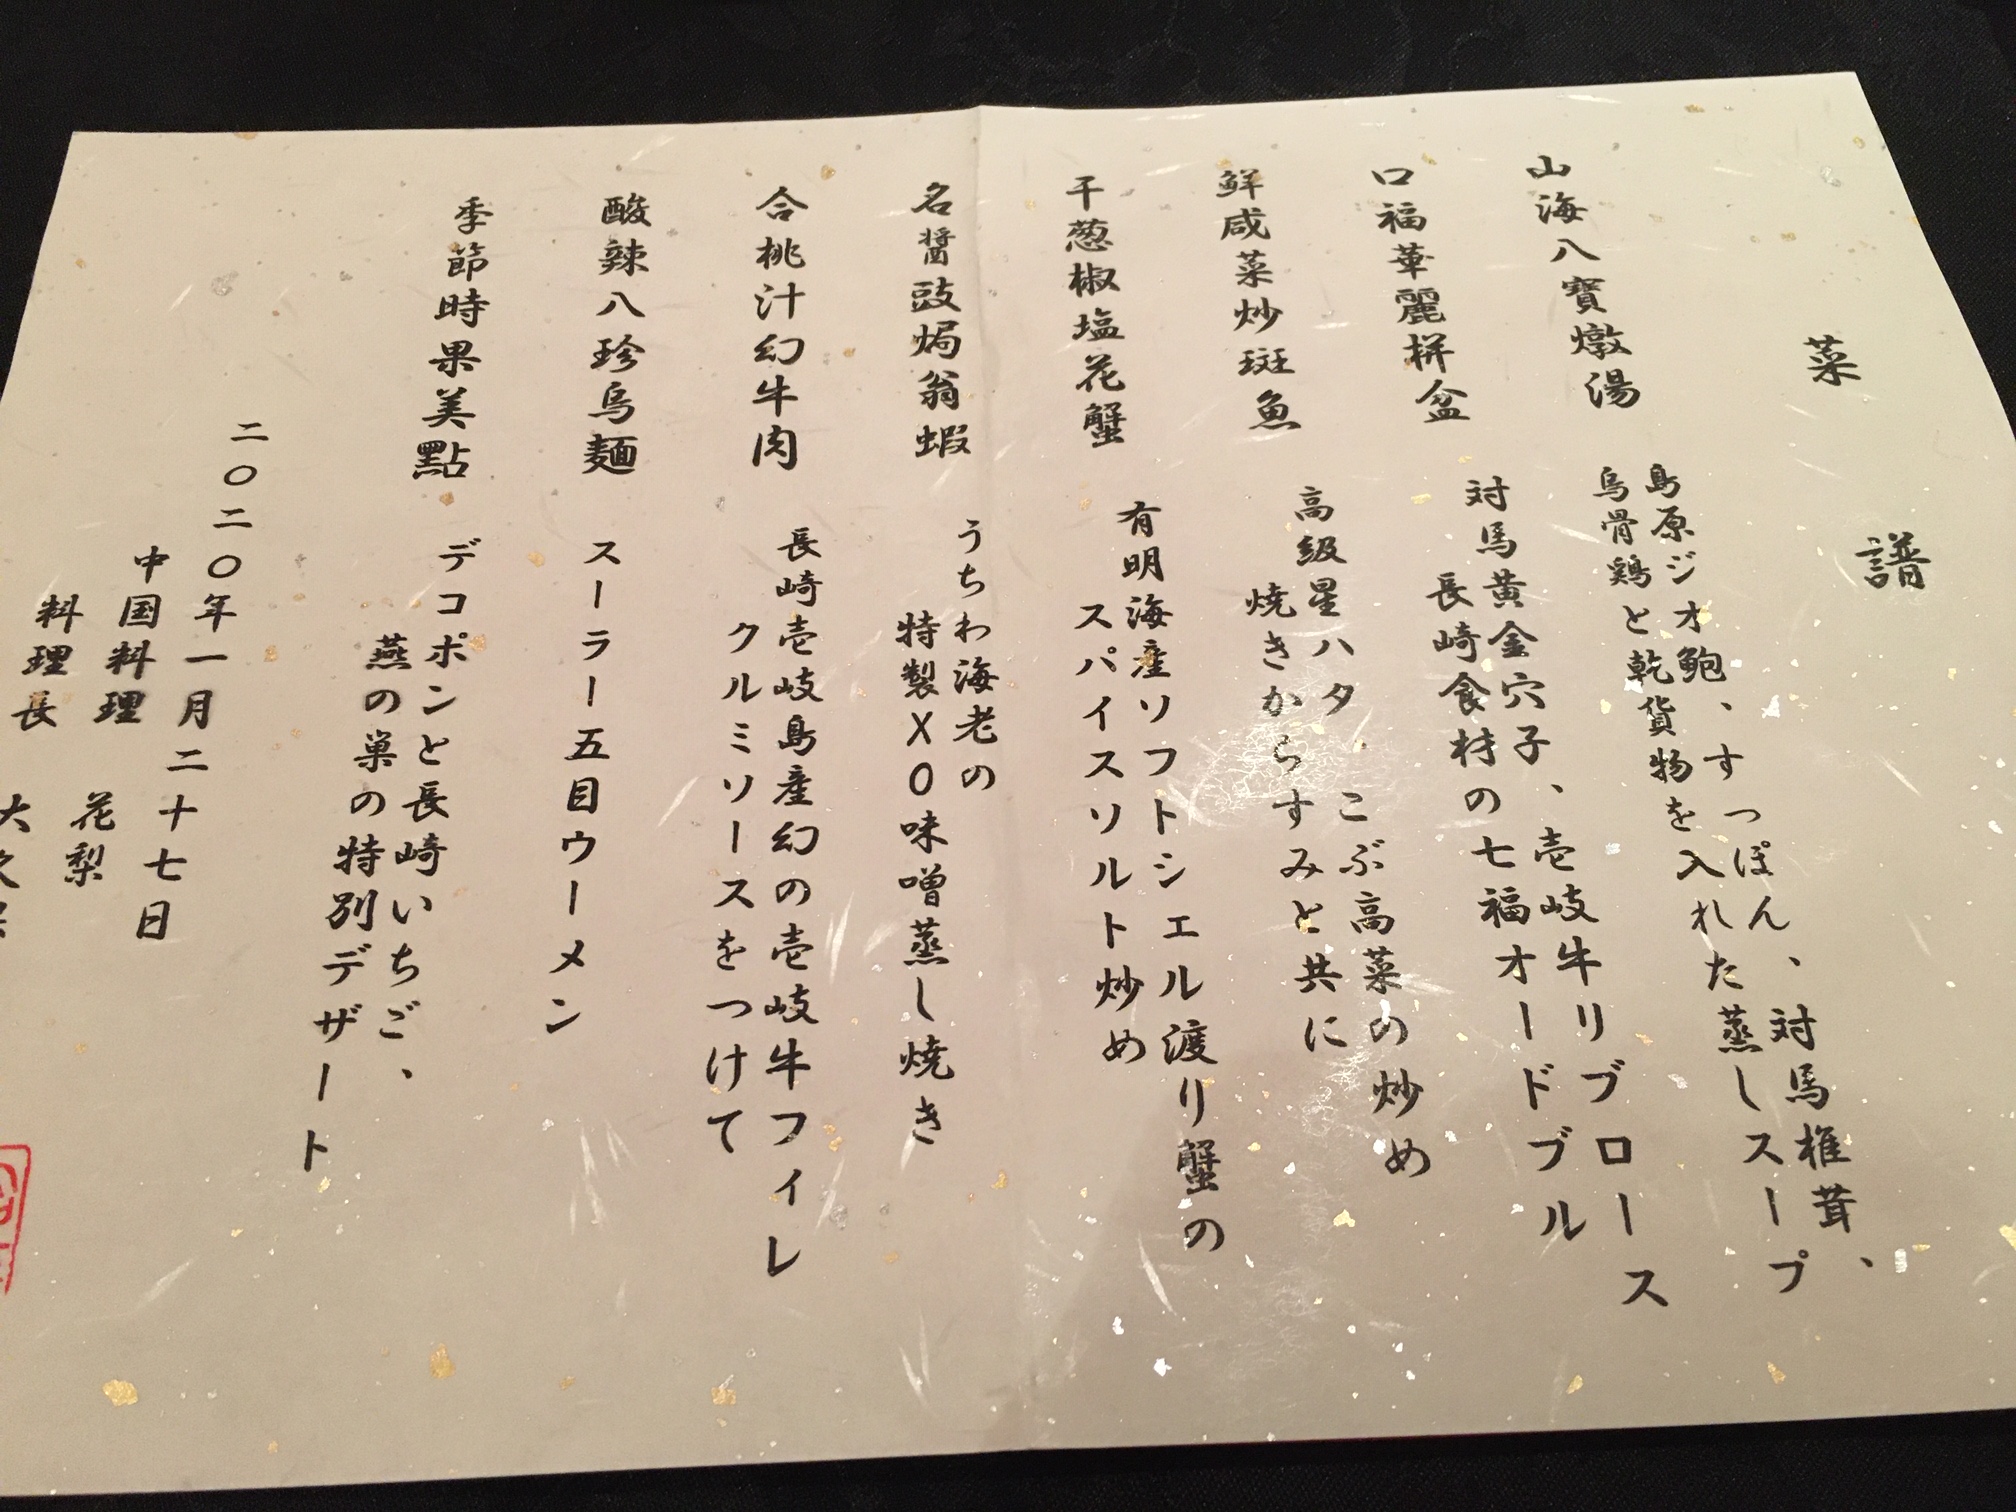 菜譜
山海八寶燉湯
島原ジオ鮑、すっぽん、対馬椎茸、
烏骨鶏と乾貨物を入れた蒸しスープ
口福華麗拼盆
対馬黄金穴子、壱岐牛リブロース
長崎食材の七福オードブル
鮮咸菜炒斑魚
高級星ハタ こぶ高菜の炒め
焼きからすみと共に
干葱椒塩花蟹
有明海産ソフトシェル渡り蟹の
スパイスソルト炒め
名醤豉焗翁蝦
うちわ海老の
特製XO味噌蒸し焼き
合桃汁幻牛肉
長崎壱岐島産幻の壱岐牛フィレ
クルミソースをつけて
酸辣八珍烏麺
スーラー五目ウーメン
季節時果美點
デコポンと長崎いちご、
燕の巣の特別デザート
二〇二〇年一月二十七日
中国料理 花梨
料理長 大久